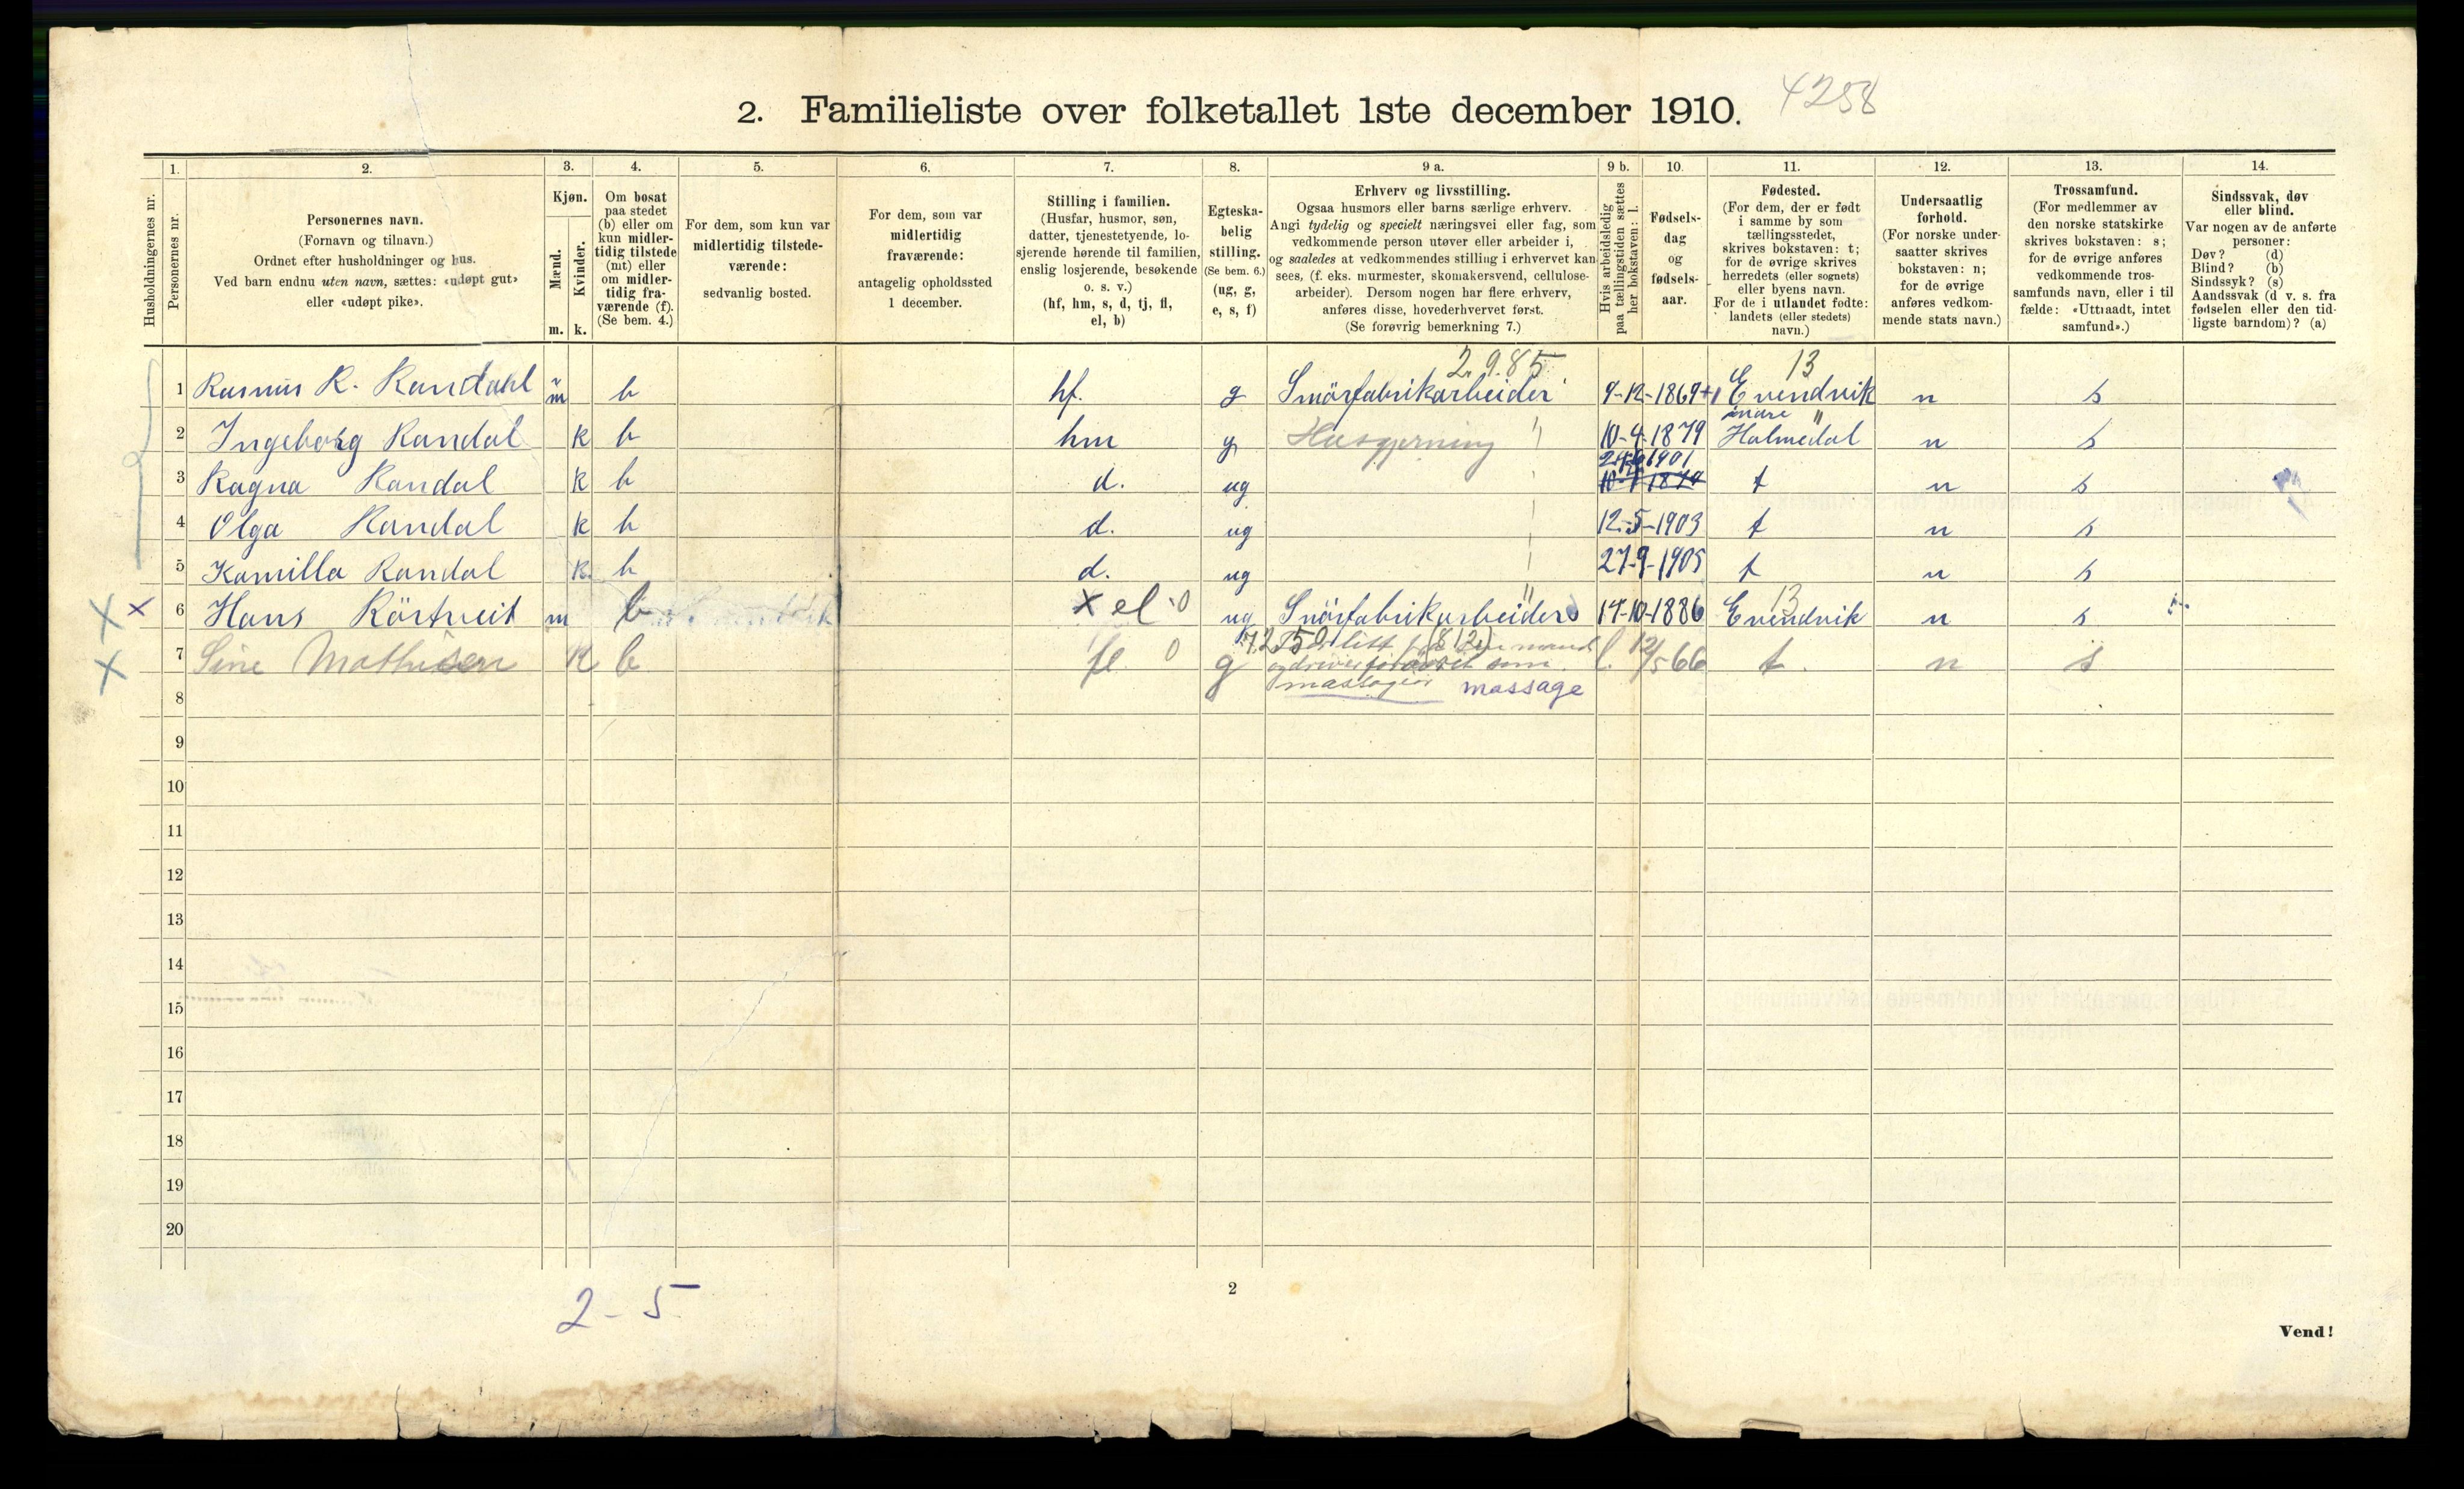 2. Familieliste over folketallet 1ste december 1910. 4258
1. 2. 3. 4. 5. 6. 7. 8. 9 a. 9 b. 10. 11. 12. 13. 14.
Husholdningernes nr.
Personernes nr.
Personernes navn.
(Fornavn og tilnavn.)
Ordnet efter husholdninger og hus.
Ved barn endnu uten navn, sættes: «udøpt gut»
eller «udøpt pike».
Kjøn.
Mænd.
Kvinder.
m. k.
Om bosat
paa stedet
(b) eller om
kun midler-
tidig tilstede
(mt) eller
om midler-
tidig fra-
værende (f).
(Se bem. 4.)
For dem, som kun var
midlertidig tilstede-
værende:
sedvanlig bosted.
For dem, som var
midlertidig
fraværende:
antagelig opholdssted
1 december.
Stilling i familien.
(Husfar, husmor, søn,
datter, tjenestetyende, lo-
sjerende hørende til familien,
enslig losjerende, besøkende
o. s. v.)
(hf, hm, s, d, tj, fl,
el, b)
Egteska-
belig
stilling.
(Se bem. 6.)
(ug, g,
e, s, f)
Erhverv og livsstilling.
Ogsaa husmors eller barns særlige erhverv.
Angi tydelig og specielt næringsvei eller fag, som
vedkommende person utøver eller arbeider i,
og saaledes at vedkommendes stilling i erhvervet kan
sees, (f. eks. murmester, skomakersvend, cellulose-
arbeider). Dersom nogen har flere erhverv,
anføres disse, hovederhvervet først.
(Se forøvrig bemerkning 7.)
Hvis arbeidsledig
paa tællingstiden sættes
her bokstaven: l.
Fødsels-
dag
og
fødsels-
aar.
Fødested.
(For dem, der er født
i samme by som
tællingsstedet,
skrives bokstaven: t;
for de øvrige skrives
herredets (eller sognets)
eller byens navn.
For de i utlandet fødte:
landets (eller stedets)
navn.)
Undersaatlig
forhold.
(For norske under-
saatter skrives
bokstaven: n;
for de øvrige
anføres vedkom-
mende stats navn.)
Trossamfund.
(For medlemmer av
den norske statskirke
skrives bokstaven: s;
for de øvrige anføres
vedkommende tros-
samfunds navn, eller i til
fælde: «Uttraadt, intet
samfund».)
Sindssvak, døv
eller blind.
Var nogen av de anførte
personer:
Døv? (d)
Blind? (b)
Sindssyk? (s)
Aandssvak (d v. s. fra
fødselen eller den tid-
ligste barndom)? (a)
2.9.85 13
1 Rasmus R. Randahl m b hf. g Smörfabrikarbeider 9-12-1869 Evendvik n s
indre "
2 Ingeborg Randal k b hm g Husgjerning " 10-4-1879 Holmedal n s
1901
3 Ragna Randal k b d. ug t n s
4 Olga Randal k b d. ug 12-5-1903 t n s
5 Kamilla Randal k b d. ug 27-9-1905 t n s
" 13
X X 6 Hans Körtveit m b X el 0 ug Smörfabrikarbeider 14-10-1886 Evendvik n s
X 7 Sine Mathisen K b fl 0 g l. 12/5 66 t. n s
massage
8
9
10
11
12
13
14
15
16
17
18
19
20
2 - 5
2
Vend!